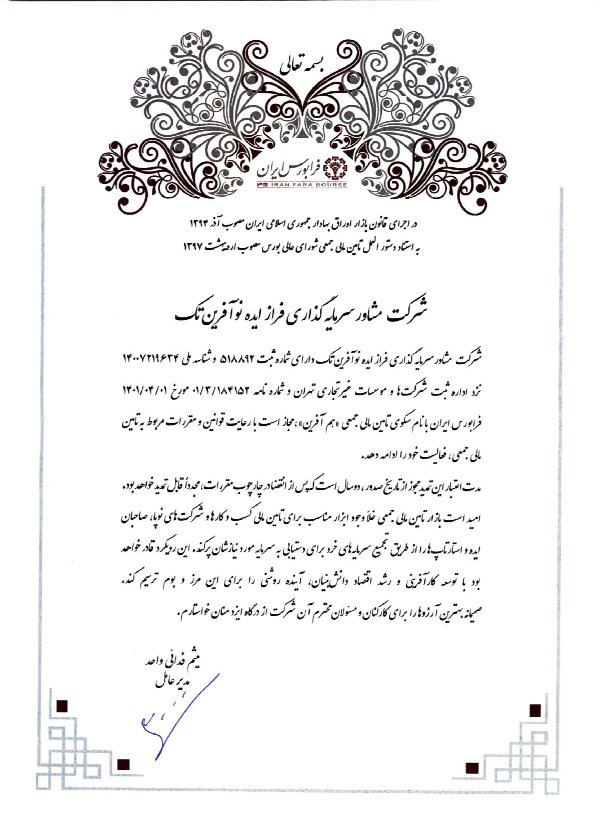 بسمه تعالی
فرابورس ایران
IRAN FARA BOURSE
در اجرای قانون بازار اوراق بهادار جمهوری اسلامی ایران مصوب آذر ۱۳۹۴
به استناد دستور العمل تامین مالی جمعی شورای عالی بورس مصوب اردیبهشت ۱۳۹۷
شرکت مشاور سرمایه گذاری فراز ایده نوآفرین تک
شرکت مشاور سرمایه گذاری فراز ایده نوآفرین تک دارای شماره ثبت ۵۱۸۸۹۲ و شناسه ملی ۱۴۰۰۷۲۱۹۶۳۴
نزد اداره ثبت شرکت‌ها و موسسات غیرتجاری تهران و شماره نامه ۰۱/۳/۱۸۴۱۵۲ مورخ ۱۴۰۱/۰۴/۰۱
فرابورس ایران با نام سکوی تامین مالی جمعی «هم آفرین»، مجاز است با رعایت قوانین و مقررات مربوط به تامین
مالی جمعی، فعالیت خود را ادامه دهد.
مدت اعتبار این تمدید مجوز از تاریخ صدور، دو سال است که پس از انقضا در چارچوب مقررات، مجدداً قابل تمدید خواهد بود.
امید است بازار تامین مالی جمعی خلأ وجود ابزار مناسب برای تامین مالی کسب و کارها و شرکت‌های نوپا، صاحبان
ایده و استارتاپ‌ها را از طریق تجمیع سرمایه‌های خرد برای دستیابی به سرمایه مورد نیازشان پر کند. این رویکرد قادر خواهد
بود با توسعه کارآفرینی و رشد اقتصاد دانش‌بنیان، آینده روشنی را برای این مرز و بوم ترسیم کند.
صمیمانه بهترین آرزوها را برای کارکنان و مسئولان محترم آن شرکت از درگاه ایزد منان خواستارم.
میثم فدائی واحد
مدیر عامل